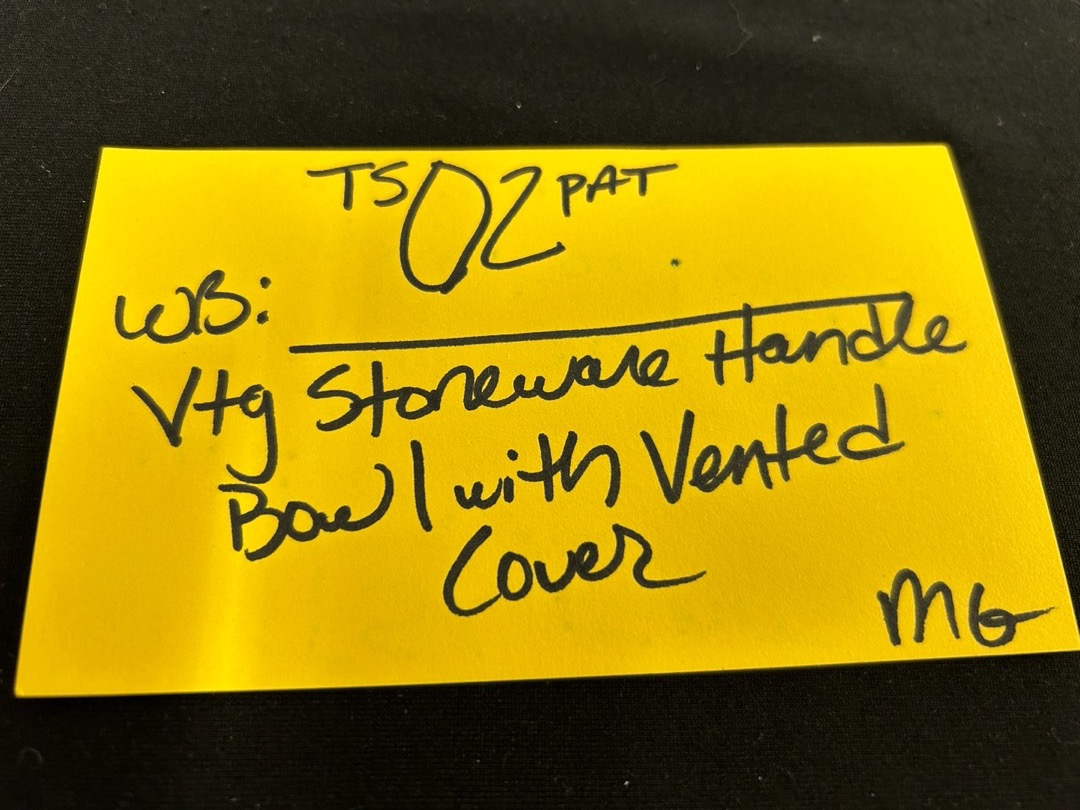 TS 02 PAT
WB:
Vtg Stoneware Handle
Bowl with Vented
Cover
MG